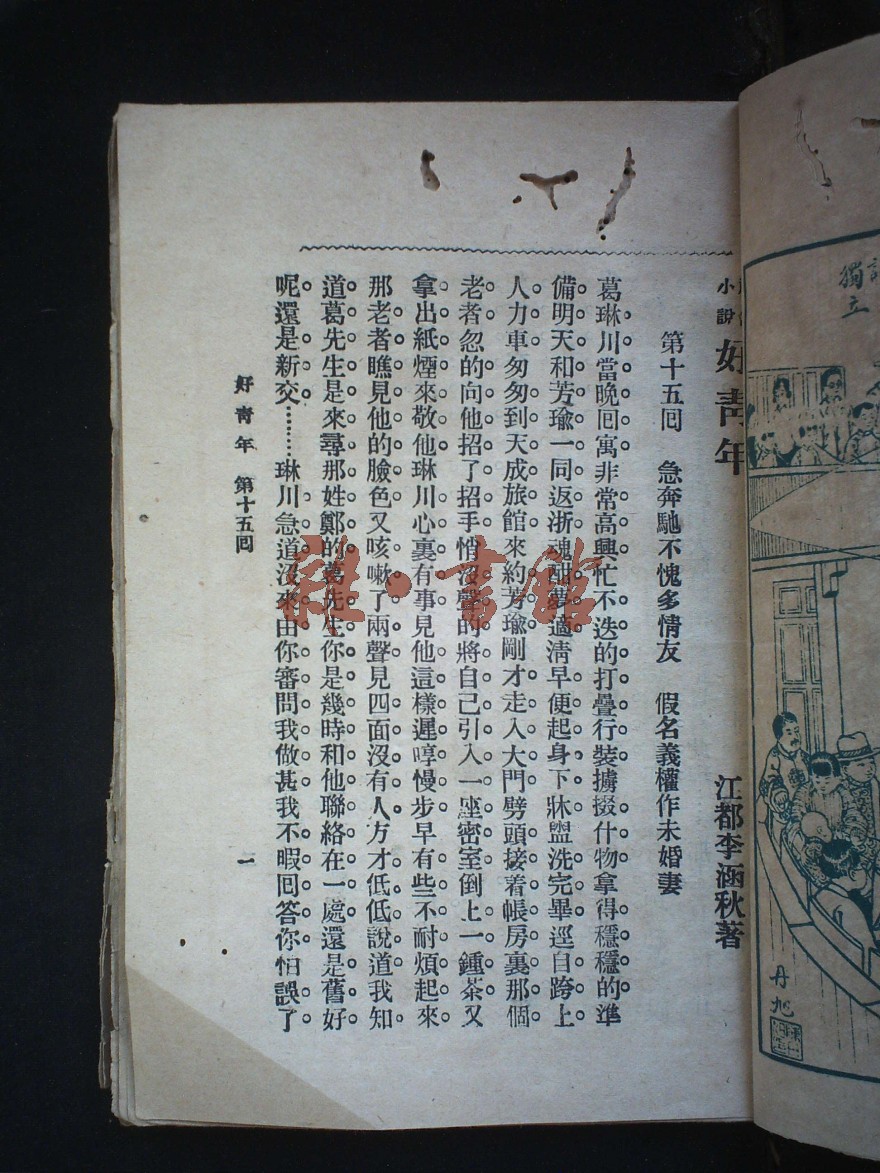 獨立
丹旭
小說
好青年
江都李涵秋著
第十五囘　急奔馳不愧多情友　假名義權作未婚妻
葛琳川當晚囘寓非常高興忙不迭的打疊行裝擄掇什物拿得穩穩的準
備明天和芳瑜一同返浙魂酣夢適清早便起身下牀盥洗完畢逕自跨上
人力車匆匆到天成旅館來約芳瑜剛才走入大門劈頭接着帳房裏那個
老者忽的向他招了招手悄沒聲的將自己引入一座密室倒上一鍾茶又
拿出紙煙來敬他琳川心裏有事見他這樣遲哼慢步早有些不耐煩起來
那老者瞧見他的臉色又咳嗽了兩聲見四面沒有人方才低低說道我知
道葛先生是來尋那姓鄭的葛先生你是幾時和他聯絡在一處還是舊好
呢還是新交………琳川急道沒來由你審問我做甚我不暇囘答你怕誤了
好青年　第十五囘
一
雜·書館